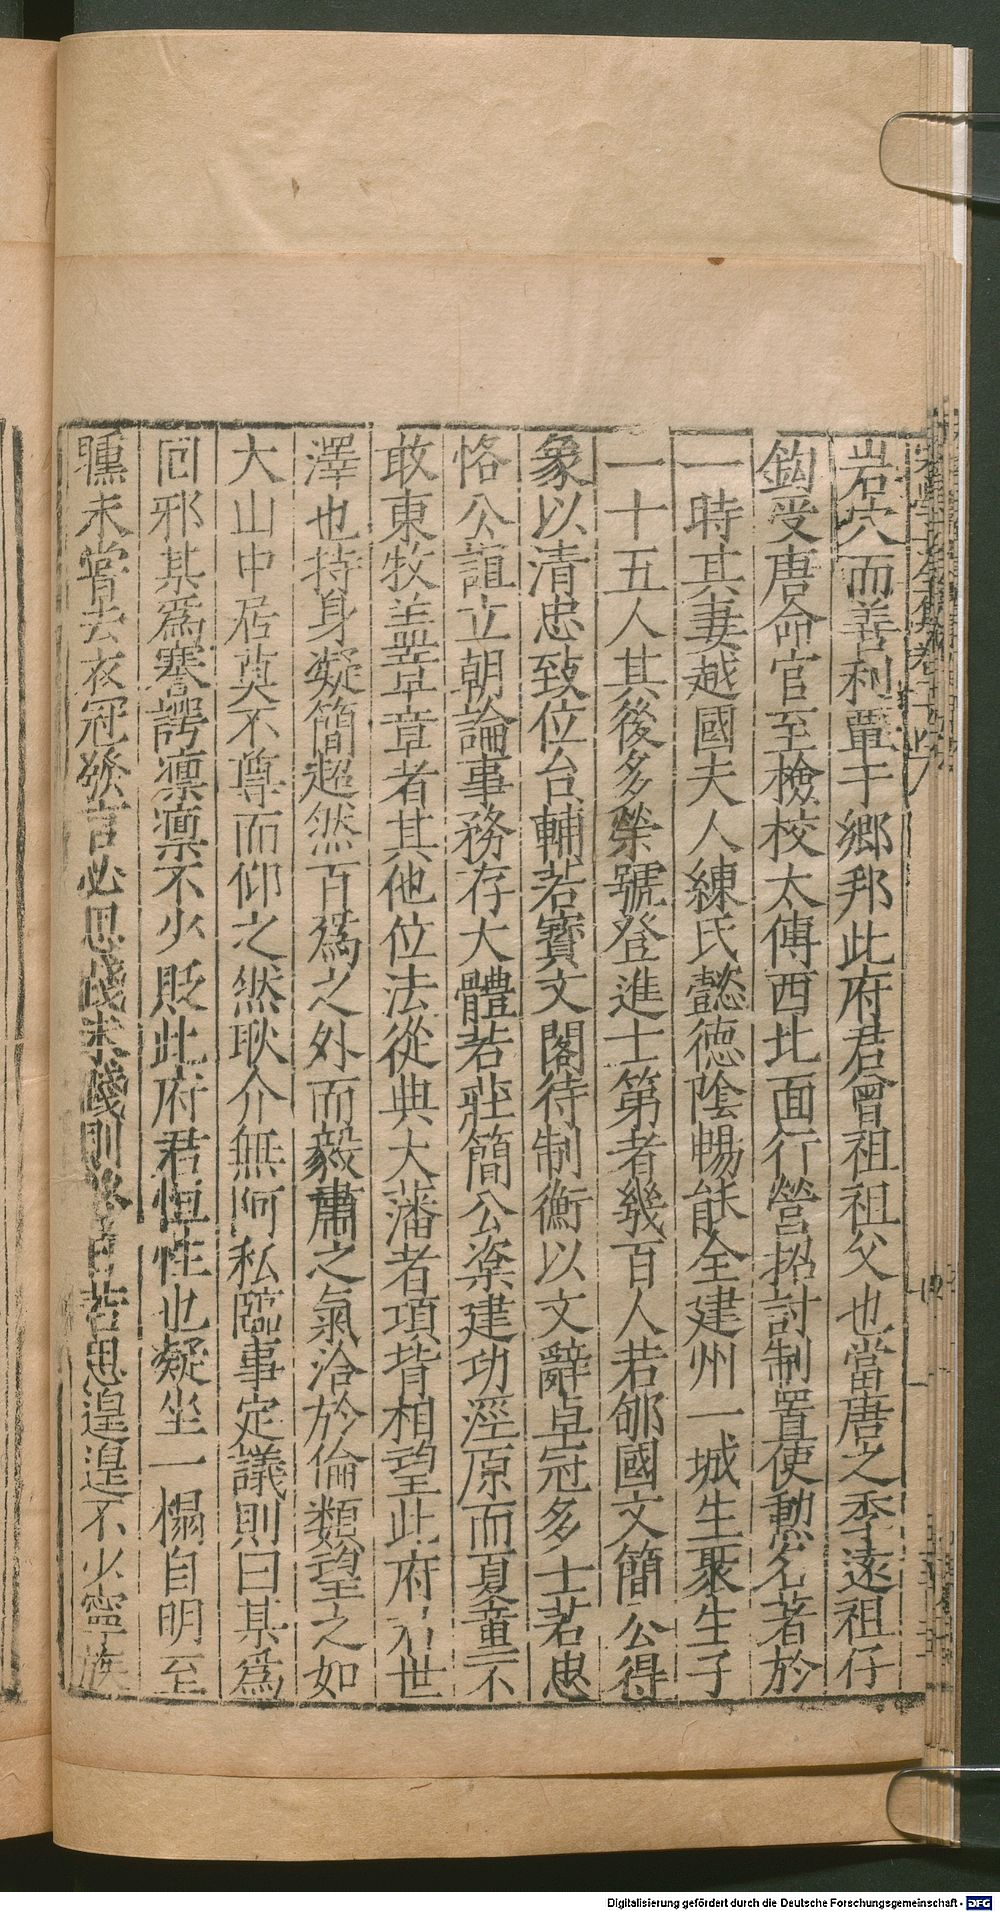 岩穴而善利覃于鄉邦此府君曾祖祖父也當唐之季遠祖仔
鈞受唐命官至檢校太傅西北面行營招討制置使勲名著於
一時其妻越國夫人練氏懿德陰暢能全建州一城生聚生子
一十五人其後多榮號登進士第者幾百人若郇國文簡公得
象以清忠致位台輔若寶文閣待制衡以文辭卓冠多士若惠
恪公誼立朝論事務存大體若莊簡公楶建功涇原而夏童不
敢東牧盖卓章者其他位法從典大藩者項背相望此府君世
澤也持身凝簡超然百爲之外而毅肅之氣洽於倫類望之如
大山中居莫不尊而仰之然耿介無阿私臨事定議則曰某爲
回邪某爲謇諤凛凛不少貶此府君恒性也凝坐一榻自明至
曛未嘗去衣冠發言必思踐未踐則終日若思遑遑不少寧族
Digitalisierung gefördert durch die Deutsche Forschungsgemeinschaft - DFG